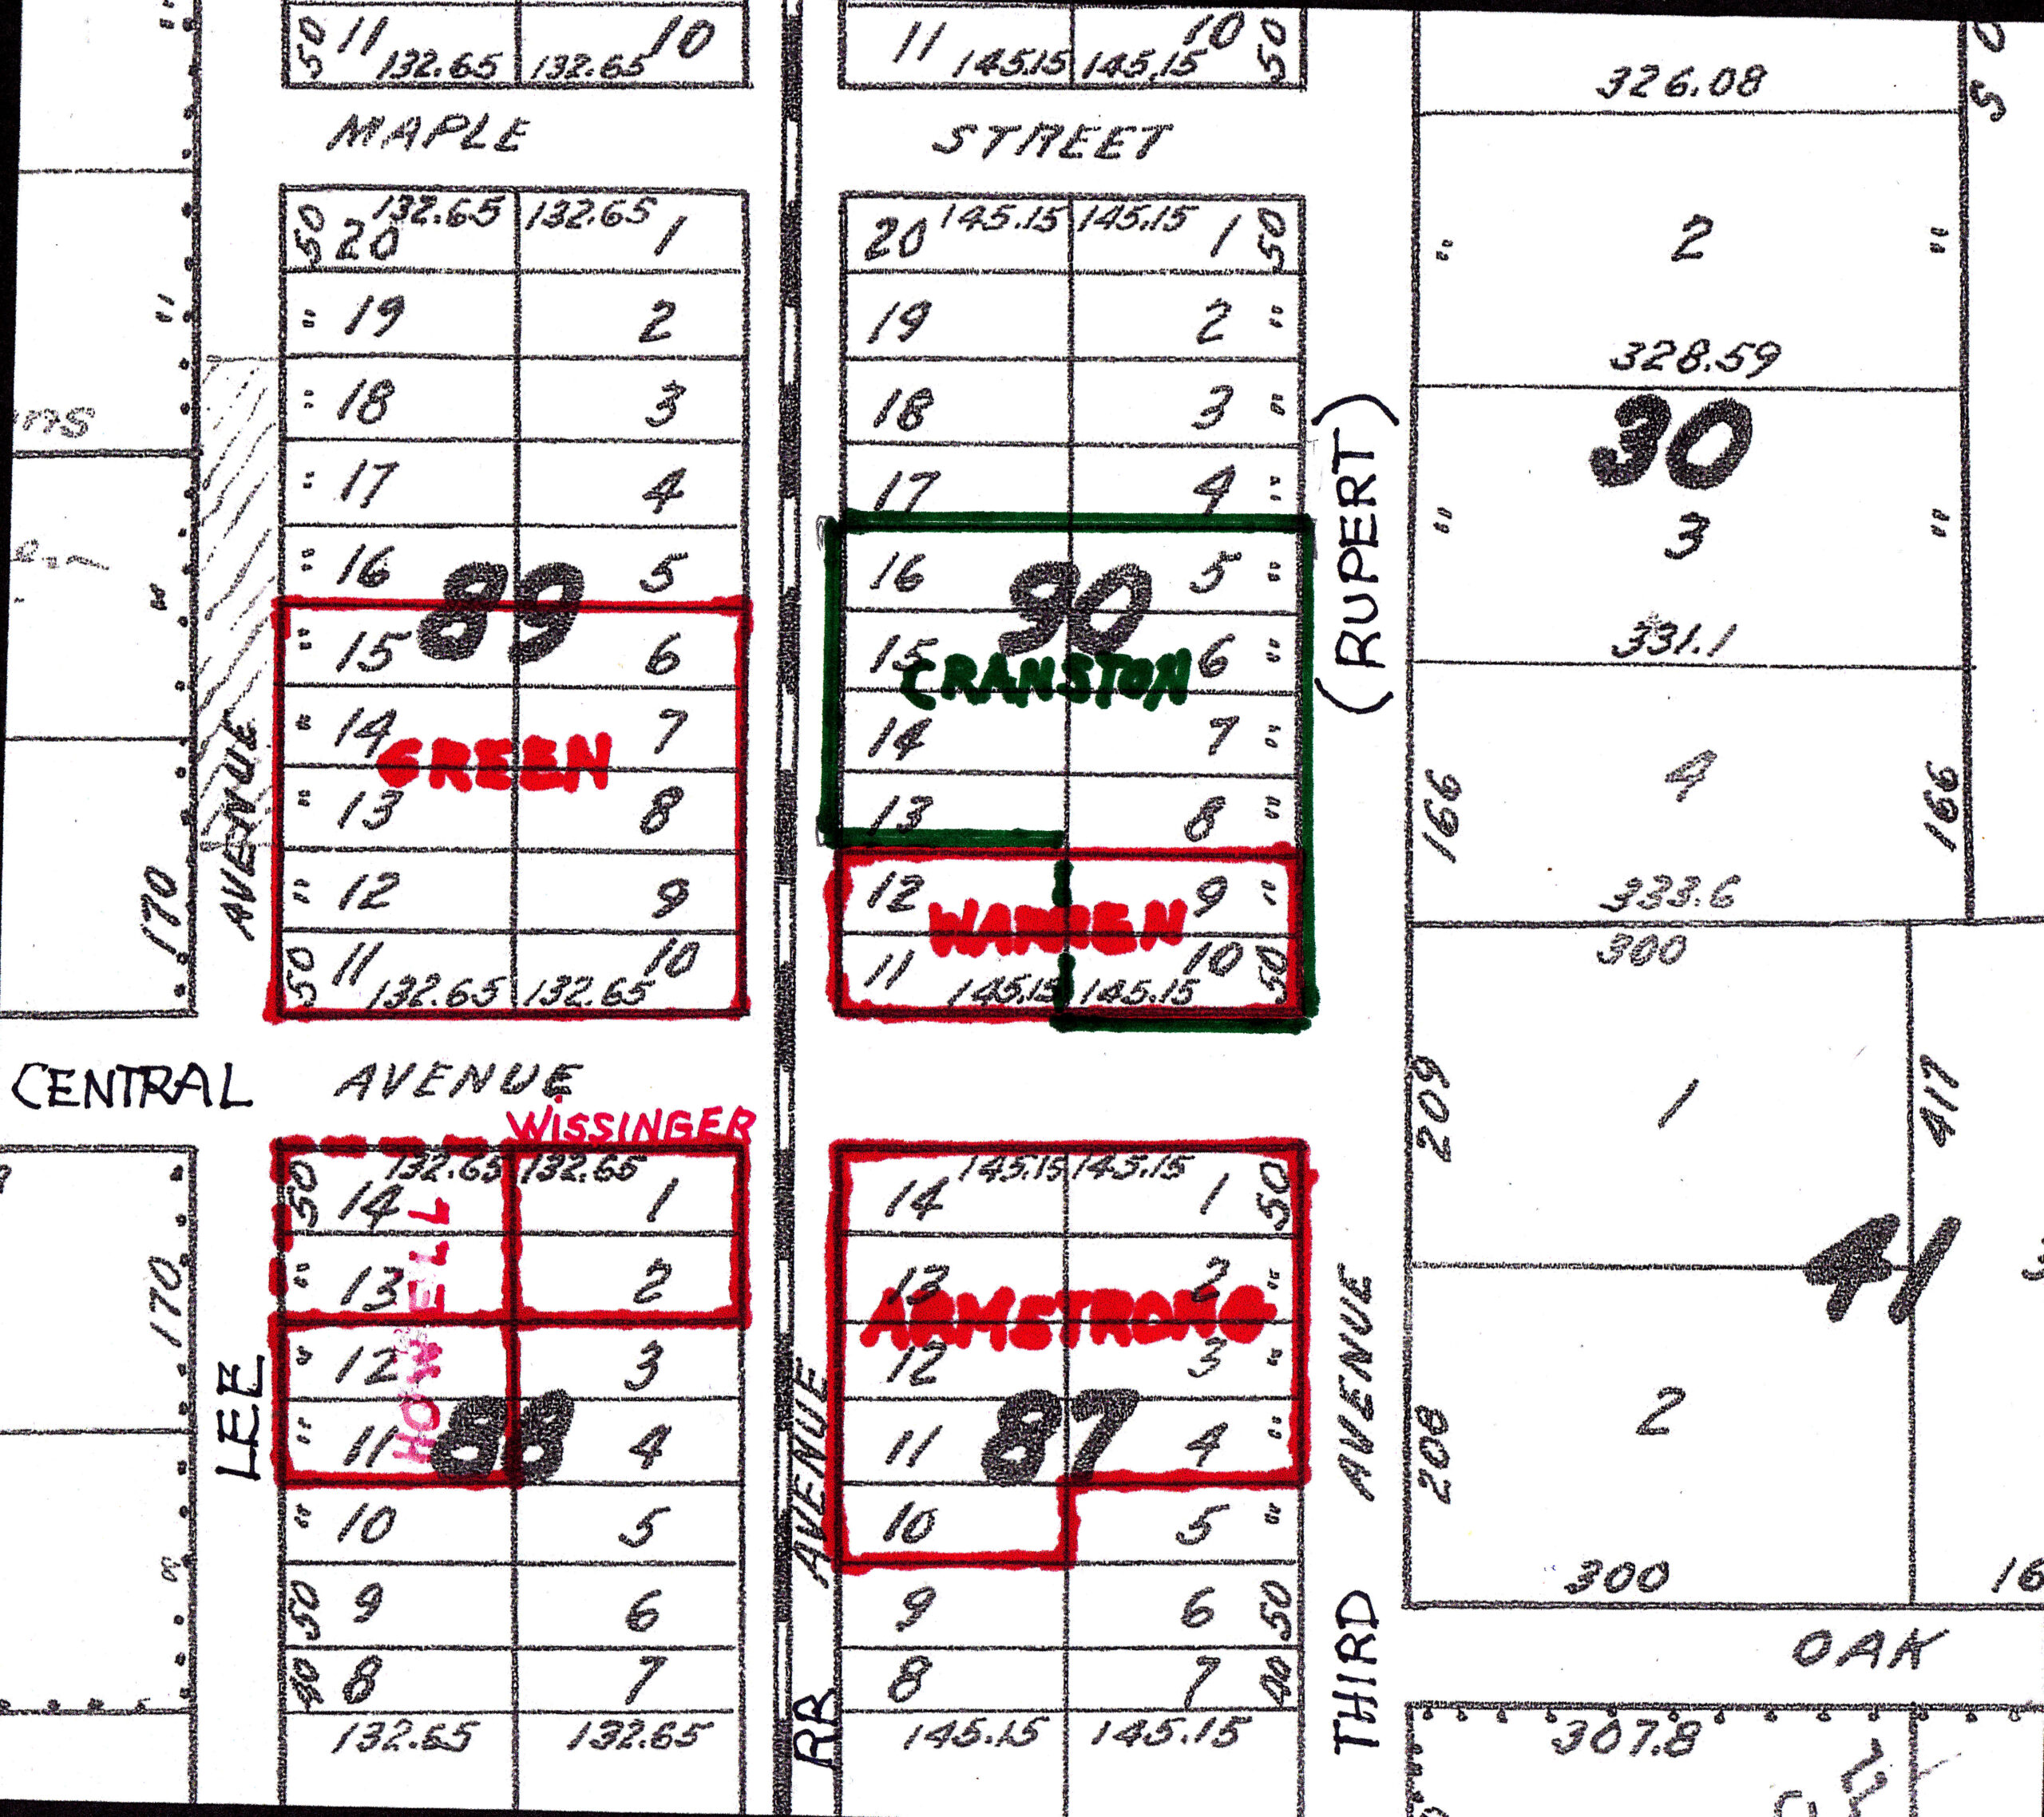 50 11 132.65 132.65 10
11 145.15 145.15 10 50
326.08
50
MAPLE STREET
50 20 132.65 132.65 1
20 145.15 145.15 1 50
" 2 "
" 19 2
19 2 "
328.59
" 18 3
18 3 "
30
" 17 4
17 4 "
" 3 "
" 16 5
16 5 "
89
90
(RUPERT)
331.1
" 15 6
15 6 "
CRANSTON
" 14 7
14 7 "
GREEN
" 13 8
13 8 "
166 4 166
AVENUE
170
333.6
" 12 9
12 9 "
WARREN
50 11 132.65 132.65 10
11 145.15 145.15 10 50
300
CENTRAL AVENUE
WISSINGER
209 1 417
50 14 132.65 132.65 1
14 145.15 145.15 1 50
" 13 2
13 2 "
HOWELL
ARMSTRONG
41
170
LEE
" 12 3
12 3 "
88
87
" 11 4
11 4 "
208 2
" 10 5
10 5 "
RR AVENUE
THIRD AVENUE
300
16
50 9 6
9 6 50
40 8 7
8 7 40
OAK
132.65 132.65
145.15 145.15
307.8